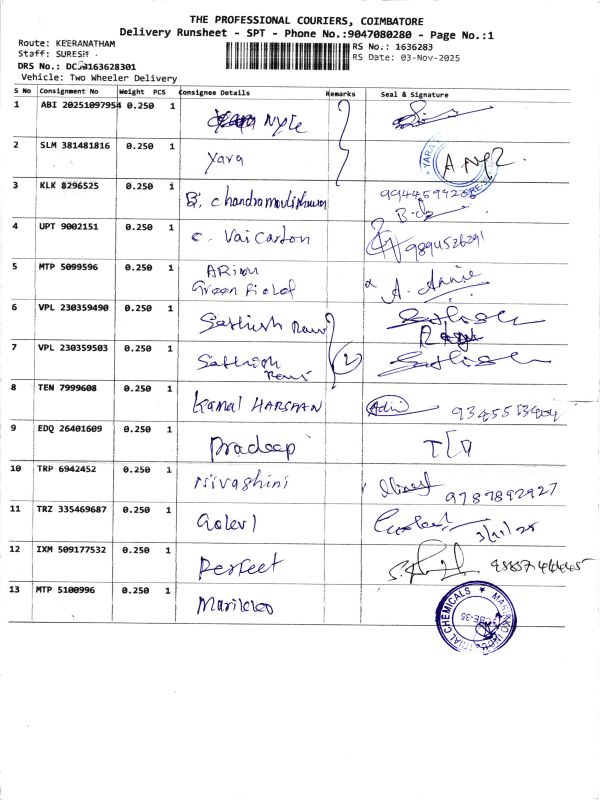 THE PROFESSIONAL COURIERS, COIMBATORE
Delivery Runsheet - SPT - Phone No.:9047080280 - Page No.:1
Route: KEERANATHAM
Staff: SURESH
DRS No.: DC 3163628301
Vehicle: Two Wheeler Delivery
RS No.: 1636283
RS Date: 03-Nov-2025
S No Consignment No Weight PCS Consignee Details Remarks Seal & Signature
1 ABI 20251097954 0.250 1 Nyle
2 SLM 381481816 0.250 1 Yara YARA
3 KLK 8296525 0.250 1 B. Chandramouli
4 UPT 9002151 0.250 1 C. Vai Carton 9894526291
5 MTP 5099596 0.250 1 Green Field A. Annie
6 VPL 230359490 0.250 1 Sathish
7 VPL 230359503 0.250 1 Sathish 2
8 TEN 7999608 0.250 1 Kamal HARSHAN
9 EDQ 26401609 0.250 1 Pradeep
10 TRP 6942452 0.250 1 Nivashini 9787892927
11 TRZ 335469687 0.250 1 3/11/25
12 IXM 509177532 0.250 1 Perfect
13 MTP 5100996 0.250 1 CHEMICALS